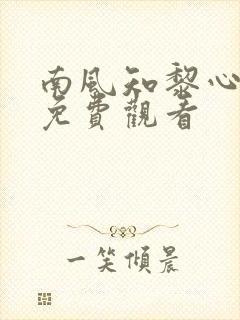 南風知黎心
免費觀看
一笑傾晨